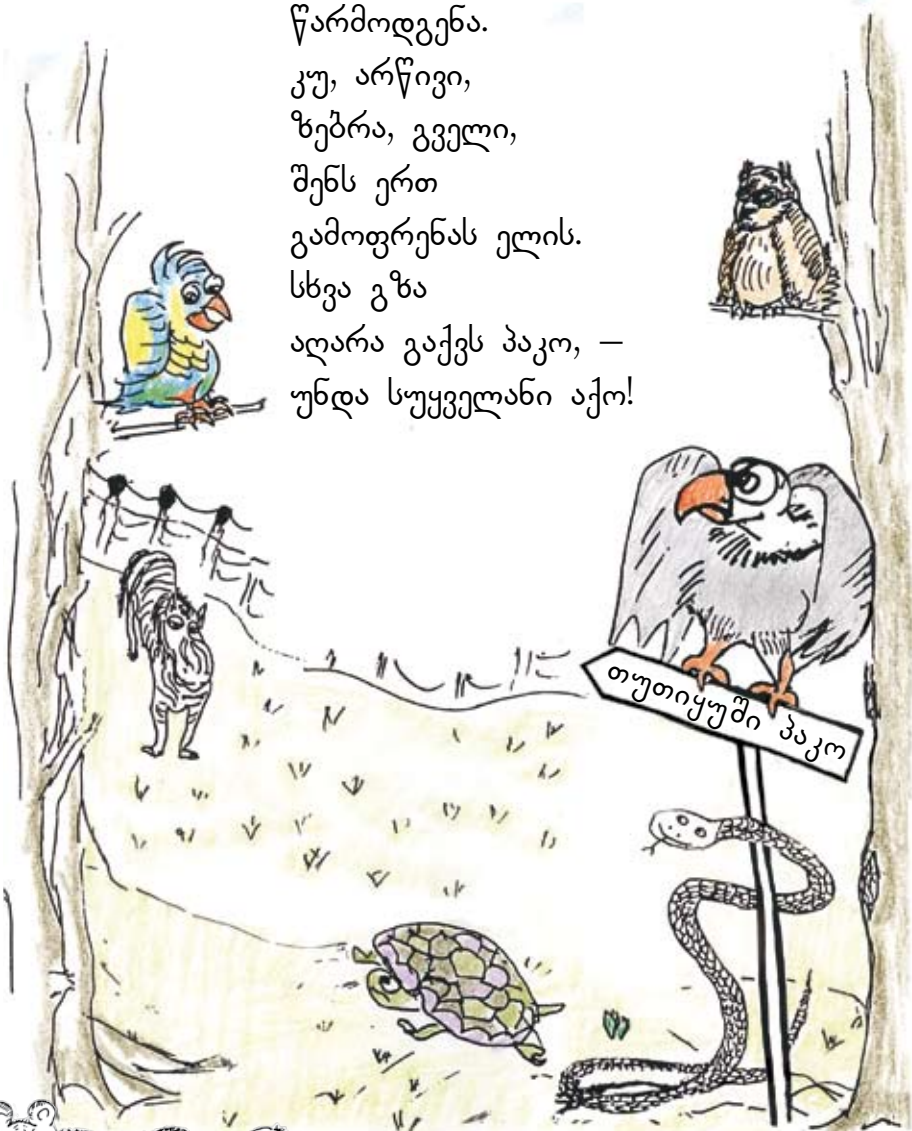 წარმოდგენა.
კუ, არწივი,
ზებრა, გველი,
შენს ერთ
გამოფრენას ელის.
სხვა გზა
აღარა გაქვს პაკო, –
უნდა სუყველანი აქო!
თუთიყუში პაკო